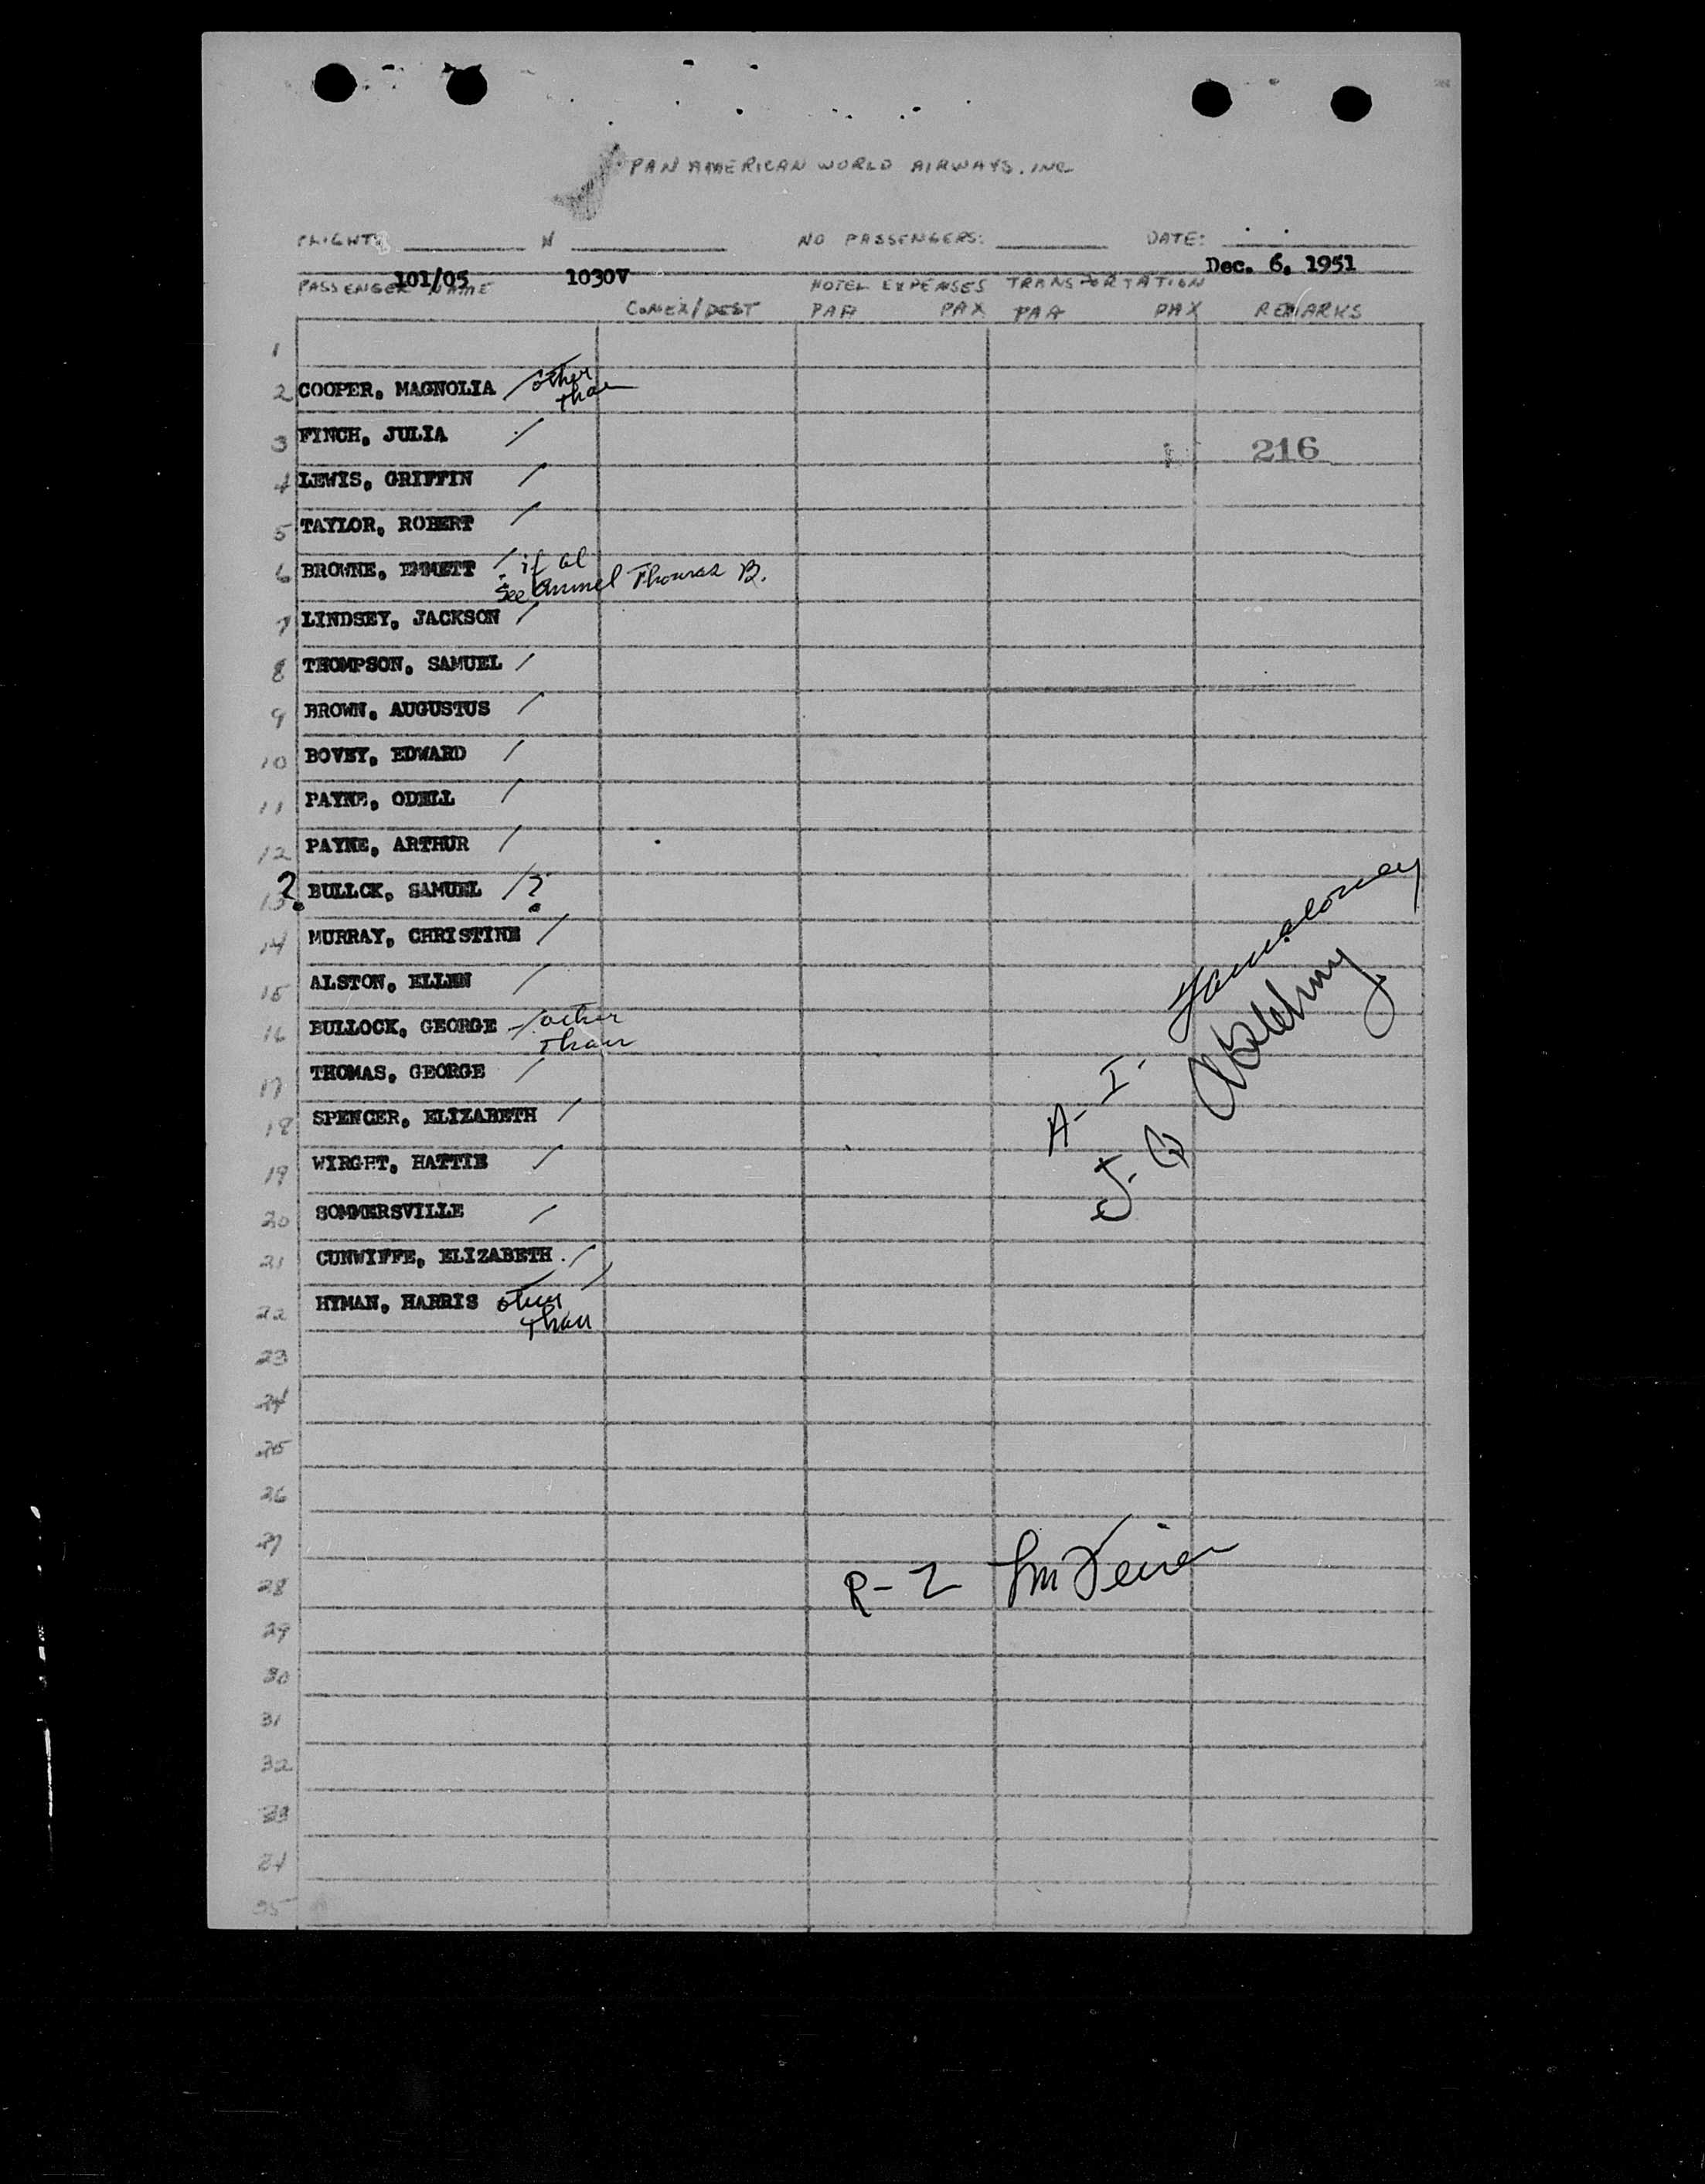 PAN AMERICAN WORLD AIRWAYS. INC
FLIGHT: N NO PASSENGERS: DATE:
101/05 1030V Dec. 6, 1951
PASSENGER NAME HOTEL EXPENSES TRANSPORTATION
CONEX/DEST PAA PAX PAA PAX REMARKS
1
2 COOPER, MAGNOLIA / other
than
3 FINCH, JULIA /
216
4 LEWIS, GRIFFIN /
5 TAYLOR, ROBERT /
6 BROWNE, EMMETT / if al
See Thomas B.
7 LINDSEY, JACKSON /
8 THOMPSON, SAMUEL /
9 BROWN, AUGUSTUS /
10 BOVEY, EDWARD /
11 PAYNE, ODELL /
12 PAYNE, ARTHUR /
13 ? BULLCK, SAMUEL / ?
14 MURRAY, CHRISTINE /
15 ALSTON, ELLEN /
16 BULLOCK, GEORGE / other
than
17 THOMAS, GEORGE /
18 SPENCER, ELIZABETH /
19 WIRGHT, HATTIE /
20 SOMMERSVILLE /
21 CUNWIFFE, ELIZABETH /
22 HYMAN, HARRIS other /
than
A- I-
J-
23
24
25
26
27
28
R-2
29
30
31
32
33
34
35